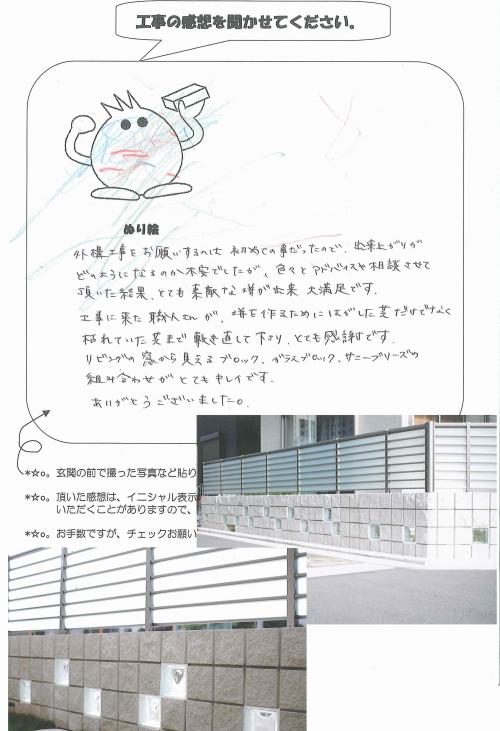 工事の感想を聞かせてください。
ぬり絵
外構工事をお願いするのは 初めての事だったので、出来上がりが
どのようになるのか不安でしたが、色々とアドバイスや相談させて
頂いた結果、とても素敵な塀が出来 大満足です。
工事に来た職人さんが、塀を作るためにはがした芝だけでなく
枯れていた芝まで敷き直して下さり、とても感謝です。
リビングの窓から見えるブロック、ガラスブロック、サニーブリーズの
組み合わせが とてもキレイです。
ありがとうございました。
*☆。玄関の前で撮った写真など貼り
*☆。頂いた感想は、イニシャル表示
いただくことがありますので、
*☆。お手数ですが、チェックお願い